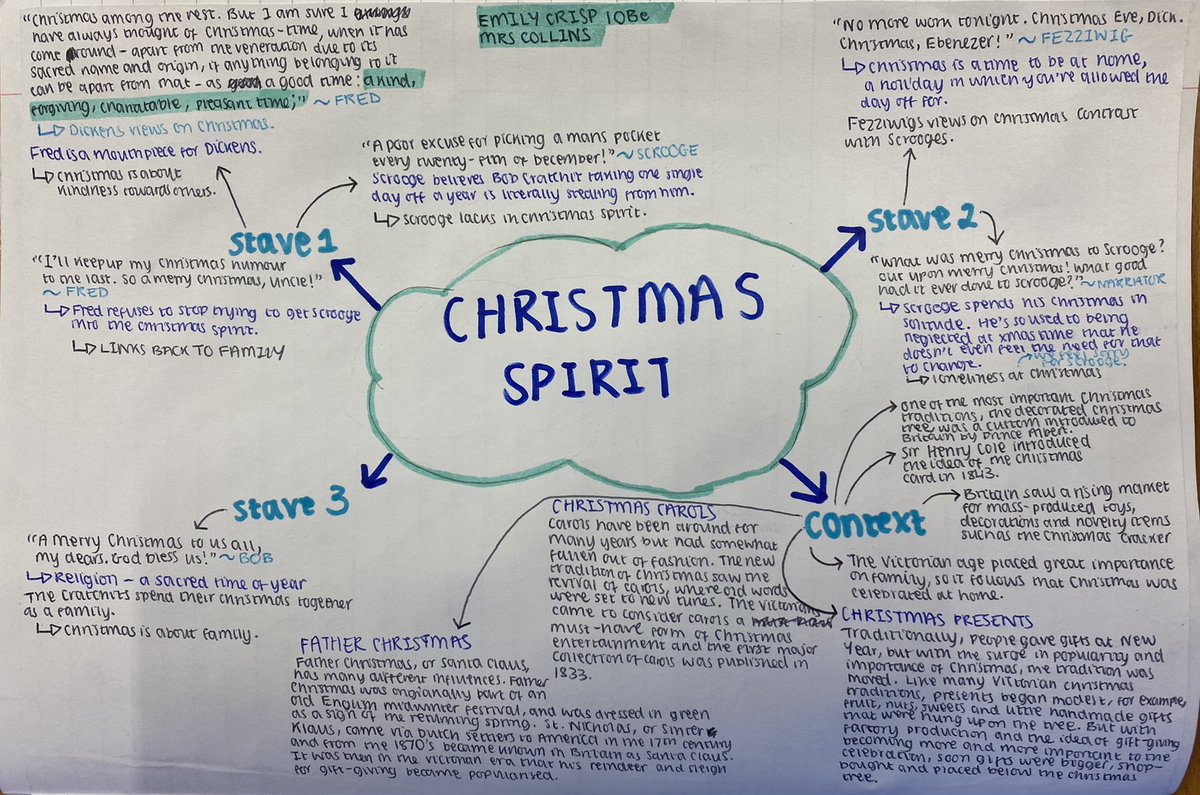 EMILY CRISP 10Be
MRS COLLINS
"Christmas among the rest. But I am sure I
have always thought of Christmas-time, when it has
come round - apart from the veneration due to its
sacred name and origin, if anything belonging to it
can be apart from that - as a good time: a kind,
forgiving, charitable, pleasant time;" ~ FRED
↳ Dickens views on Christmas.
Fred is a mouthpiece for Dickens.
↳ Christmas is about
kindness towards others.
"A poor excuse for picking a mans pocket
every twenty-fith of december!" ~ SCROOGE
Scrooge believes BOB Cratchit taking one single
day off a year is literally stealing from him.
↳ Scrooge lacks in christmas spirit.
stave 1
"I'll keep up my christmas humour
to the last. So a merry christmas, uncle!"
~ FRED
↳ Fred refuses to stop trying to get scrooge
into the christmas spirit.
↳ LINKS BACK TO FAMILY
"No more work tonight. Christmas Eve, Dick.
Christmas, Ebenezer!" ~ FEZZIWIG
↳ Christmas is a time to be at home,
a holiday in which you're allowed the
day off for.
Fezziwigs views on christmas contrast
with Scrooges.
stave 2
"What was merry christmas to Scrooge?
out upon merry christmas! what good
had it ever done to scrooge?" ~ NARRATOR
↳ Scrooge spends his christmas in
solitude. He's so used to being
neglected at xmas time that he
doesn't even feel the need for that
to change.
→ we feel sorry
for scrooge.
↳ loneliness at christmas
CHRISTMAS
SPIRIT
stave 3
"A merry Christmas to us all,
my dears. God bless us!" ~ BOB
↳ Religion - a sacred time of year
The cratchits spend their christmas together
as a family.
↳ Christmas is about family.
context
one of the most important Christmas
traditions, the decorated christmas
tree, was a custom introduced to
Britain by Prince Albert.
Sir Henry Cole introduced
the idea of the christmas
card in 1843.
Britain saw a rising market
for mass-produced toys,
decorations and novelty items
such as the christmas cracker
The Victorian age placed great importance
on family, so it follows that Christmas was
celebrated at home.
CHRISTMAS CAROLS
Carols have been around for
many years but had somewhat
fallen out of fashion. The new
tradition of christmas saw the
revival of carols, where old words
were set to new tunes. The Victorians
came to consider carols a
must-have form of christmas
entertainment and the first major
collection of carols was published in
1833.
FATHER CHRISTMAS
Father christmas, or santa claus,
has many different influences. Father
christmas was originally part of an
old English midwinter festival, and was dressed in green
as a sign of the returning spring. St. Nicholas, or Sinter
Klaus, came via dutch settlers to America in the 17th century
and from the 1870's became known in Britain as Santa Claus.
It was then in the victorian era that his reindeer and sleigh
for gift-giving became popularised.
CHRISTMAS PRESENTS
Traditionally, people gave gifts at New
Year, but with the surge in popularity and
importance of Christmas, the tradition was
moved. Like many Victorian christmas
traditions, presents began modest, for example,
fruit, nuts, sweets and little handmade gifts
that were hung upon the tree. But with
factory production and the idea of gift-giving
becoming more and more important to the
celebration, soon gifts were bigger, shop-
bought and placed below the christmas
tree.